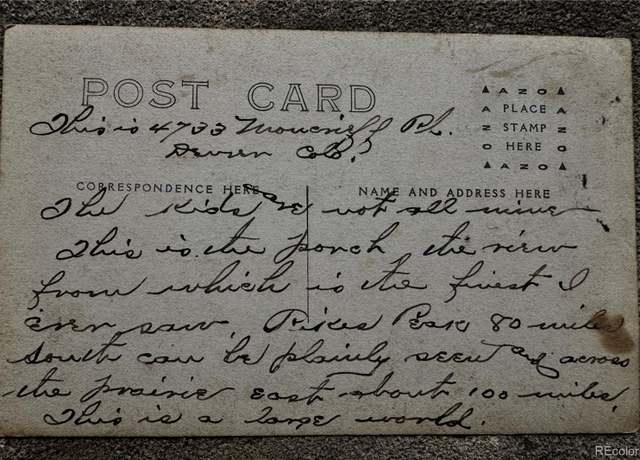 POST CARD
▲ A Z O ▲
A PLACE A
Z STAMP Z
O HERE O
▲ A Z O ▲
This is 4733 Moncrieff Pl.
Denver Colo.
CORRESPONDENCE HERE
NAME AND ADDRESS HERE
The kids are not all mine
This is the porch the view
from which is the finest I
ever saw. Pikes Peak 80 miles
south can be plainly seen and across
the prairie east about 100 miles.
This is a large world.
REcolor